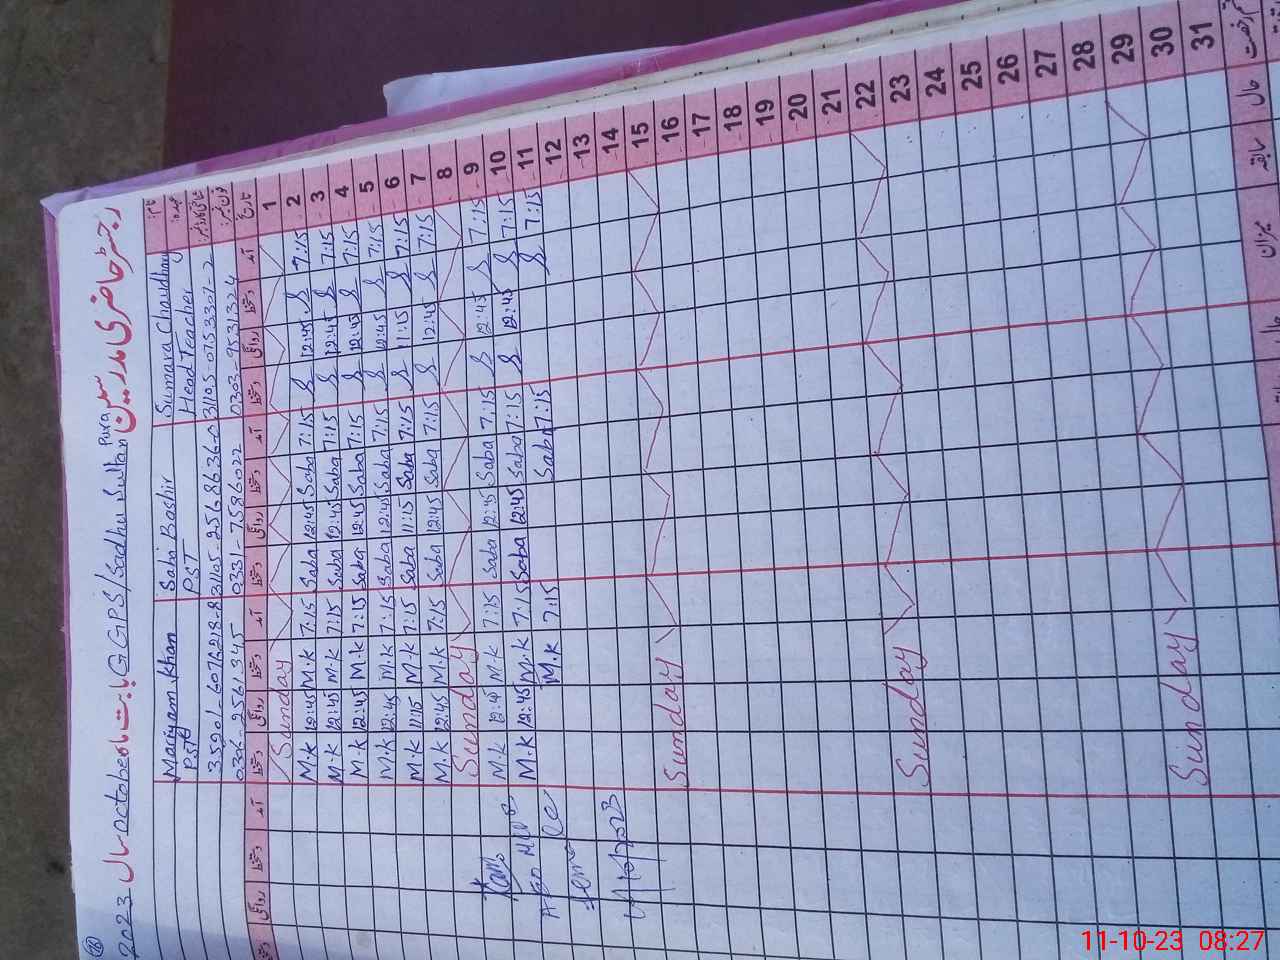 رجسٹر حاضری مدرسین GGPS/Sadhu Sultan Pura بابت ماہ october سال 2023
نام: Sumara Chaudhary Sabi Bashir Mariyam Khan
عہدہ: Head Teacher PST PST
31105-2568636-0
0303-9531324 0331-7586022 0336-2561345
تاریخ آمد دستخط روانگی دستخط آمد دستخط روانگی دستخط آمد دستخط روانگی دستخط آمد دستخط روانگی دستخط
1 Sunday
2 7:15 12:45 7:15 Saba 12:45 Saba 7:15 M.K 12:45 M.K
3 7:15 12:45 7:15 Saba 12:45 Saba 7:15 M.K 12:45 M.K
4 7:15 12:45 7:15 Saba 12:45 Saba 7:15 M.K 12:45 M.K
5 7:15 12:45 7:15 Saba 12:45 Saba 7:15 M.K 12:45 M.K
6 7:15 11:15 7:15 Saba 11:15 Saba 7:15 M.K 11:15 M.K
7 7:15 12:45 7:15 Saba 12:45 Saba 7:15 M.K 12:45 M.K
8 Sunday
9 7:15 12:45 7:15 Saba 12:45 Saba 7:15 M.K 12:45 M.K
10 7:15 12:45 7:15 Saba 12:45 Saba 7:15 M.K 12:45 M.K
11 7:15 7:15 Saba 7:15 M.K
12
13
14
15 Sunday
16
17
18
19
20
21
22 Sunday
23
24
25
26
27
28
29 Sunday
30
31
حال سابقہ میزان
11-10-23 08:27